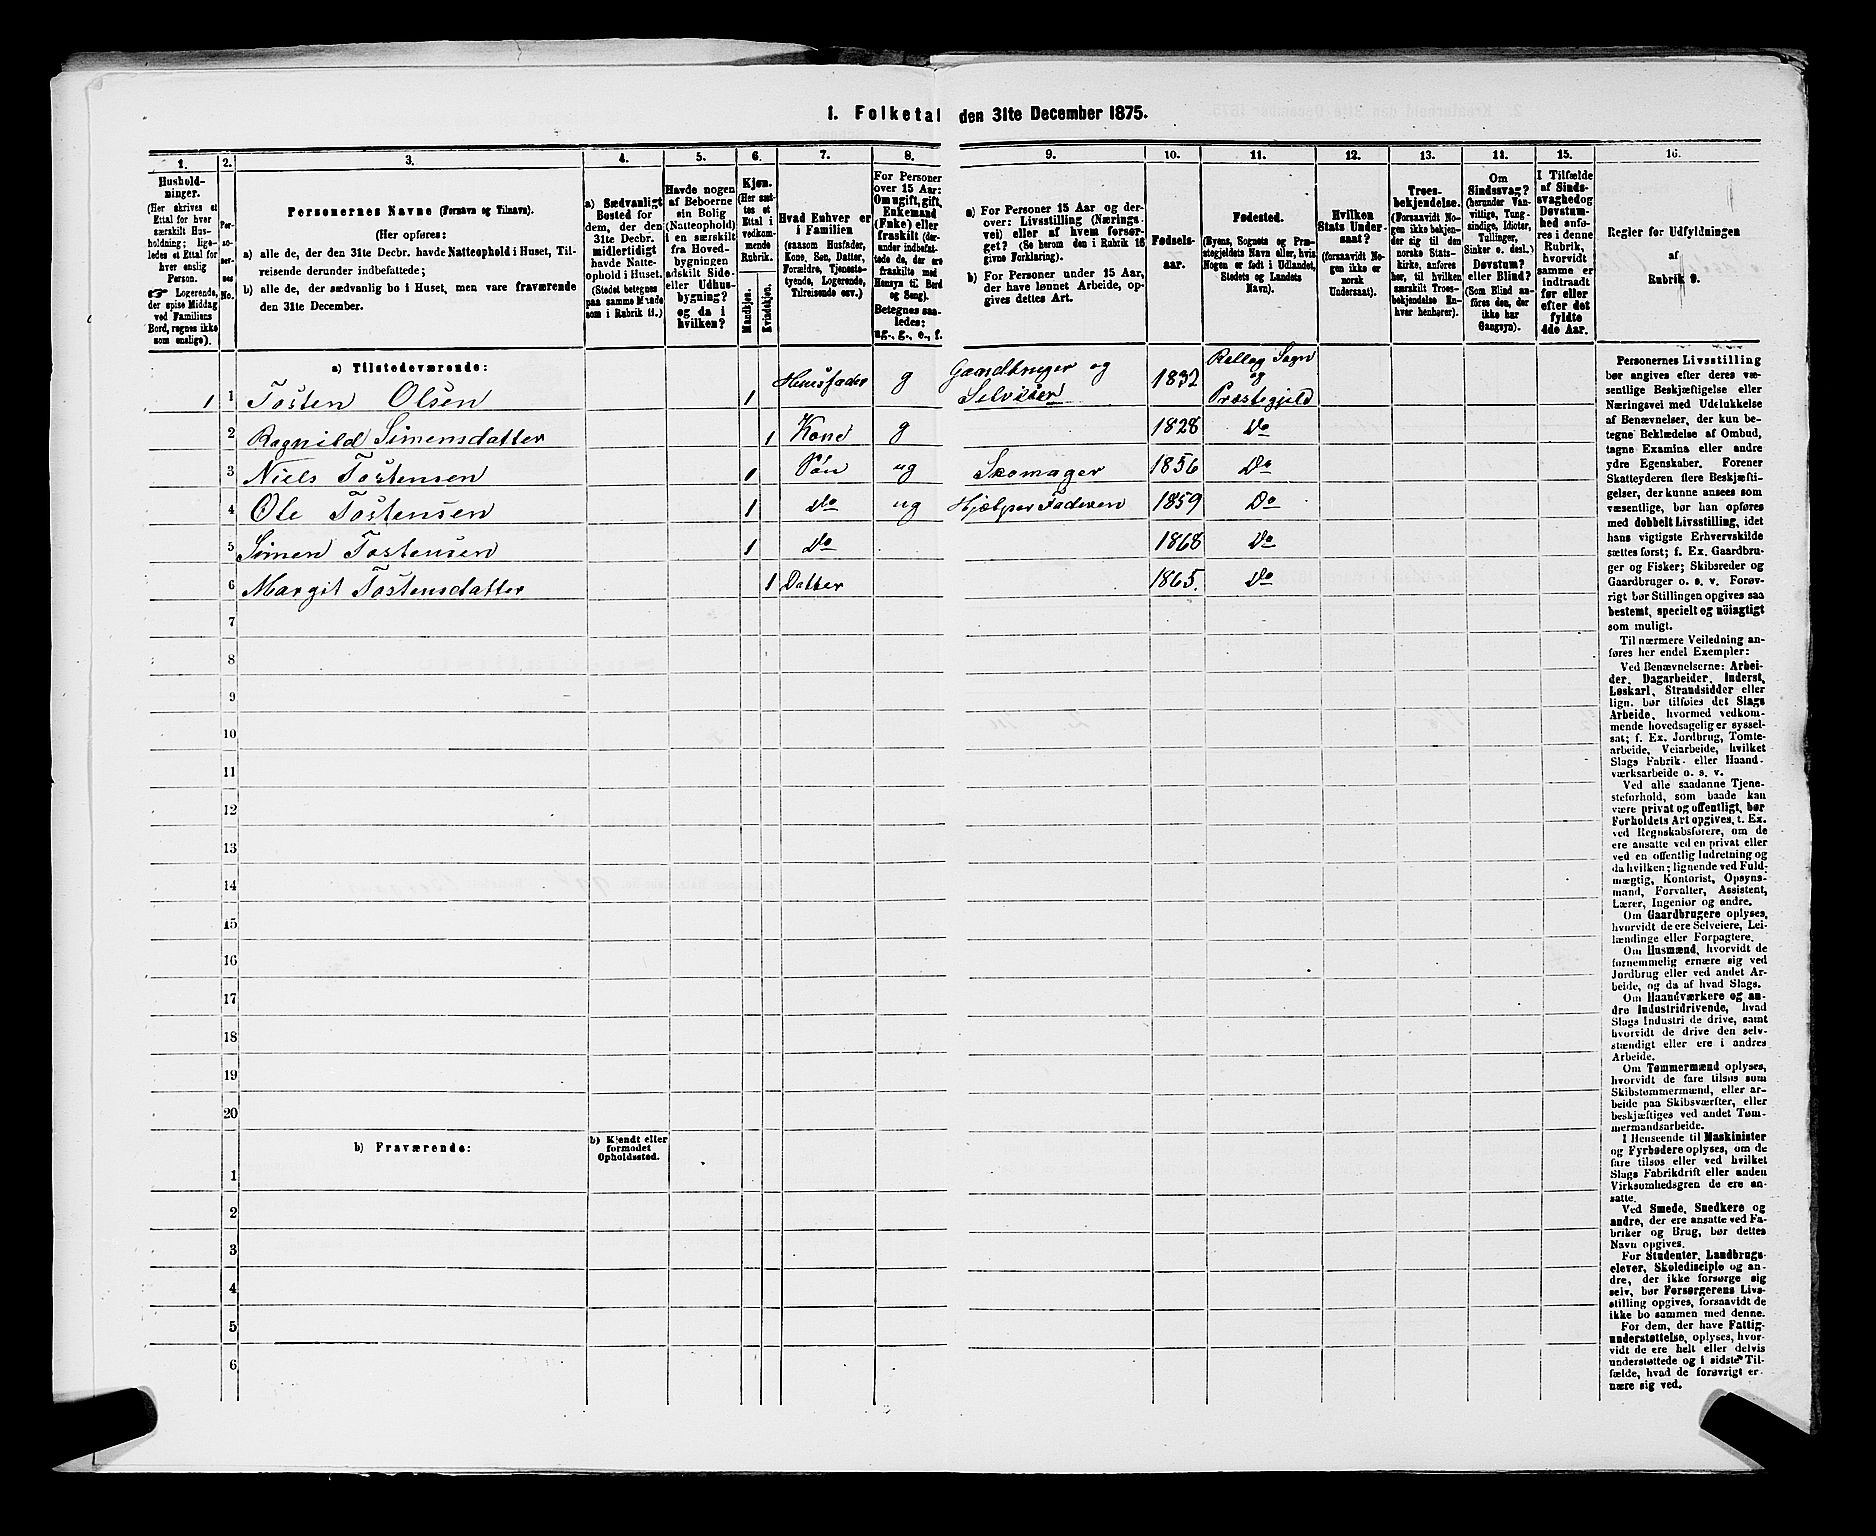 1. Folketal den 31te December 1875.
1. 2. 3. 4. 5. 6. 7. 8. 9. 10. 11. 12. 13. 14. 15. 16.
Hushold-
ninger.
(Her skrives et
Ettal for hver
særskilt Hus-
holdning; lige-
ledes et Ettal for
hver enslig
Person.
☞ Logerende,
der spise Middag
ved Familiens
Bord, regnes ikke
som enslige).
Per-
so-
ner-
nes
No.
Personernes Navne (Fornavn og Tilnavn).
(Her opføres:
a) alle de, der den 31te Decbr. havde Natteophold i Huset, Til-
reisende derunder indbefattede;
b) alle de, der sædvanlig bo i Huset, men vare fraværende
den 31te December.
a) Sædvanligt
Bosted for
dem, der den
31te Decbr.
midlertidigt
havde Natte-
ophold i Huset.
(Stedet betegnes
paa samme Maade
som i Rubrik 11.)
Havde nogen
af Beboerne
sin Bolig
(Natteophold)
i en særskilt
fra Hoved-
bygningen
adskilt Side-
eller Udhus-
bygning?
og da i
hvilken?
Kjøn.
(Her sæt-
tes et
Ettal i
vedkom-
mende
Rubrik.
Mandkjøn.
Kvindekjøn.
Hvad Enhver er
i Familien
(saasom Husfader,
Kone, Søn, Datter,
Forældre, Tjeneste-
tyende, Logerende,
Tilreisende osv.)
For Personer
over 15 Aar:
Om ugift, gift,
Enkemand
(Enke) eller
fraskilt (der-
under indbefat-
tede de, der ere
fraskilte med
Hensyn til Bord
og Seng).
Betegnes saa-
ledes:
ug., g., e., f.
a) For Personer 15 Aar og der-
over: Livsstilling (Nærings-
vei) eller af hvem forsør-
get? (Se herom den i Rubrik 16
givne Forklaring).
b) For Personer under 15 Aar,
der have lønnet Arbeide, op-
gives dettes Art.
Fødsels-
aar.
Fødested.
(Byens, Sognets og Præ-
stegjeldets Navn eller, hvis
Nogen er født i Udlandet,
Stedets og Landets
Navn).
Hvilken
Stats Under-
saat?
(forsaavidt No-
gen ikke er
norsk
Undersaat).
Troes-
bekjendelse.
(Forsaavidt No-
gen ikke bekjen-
der sig til den
norske Stats-
kirke, anføres
her, til hvilken
særskilt Troes-
bekjendelse En-
hver henhører).
Om
Sindssvag?
(herunder Van-
vittige, Tung-
sindige, Idioter,
Tullinger,
Sinker o. desl.)
Døvstum?
eller Blind?
(Som Blind an-
føres den, der
ikke har
Gangsyn).
I Tilfælde
af Sinds-
svaghed og
Døvstum-
hed anfø-
res i denne
Rubrik,
hvorvidt
samme er
indtraadt
før eller
efter det
fyldte
4de Aar.
Regler for Udfyldningen
af
Rubrik 9.
a) Tilstedeværende:
1 1 Tosten Olsen 1 Huusfader g Gaardbruger og Selveier 1832 Rollag Sogn og Præstegjeld
2 Ragnild Simensdatter 1 Kone g 1828 Do
3 Niels Tostensen 1 Søn ug Skomager 1856 Do
4 Ole Tostensen 1 do ug Hjælper Faderen 1859 Do
5 Simen Tostensen 1 Do 1868 Do
6 Margit Tostensdatter 1 Datter 1865. Do
7
8
9
10
11
12
13
14
15
16
17
18
19
20
b) Fraværende:
b) Kjendt eller
formodet
Opholdssted.
1
2
3
4
5
6
Personernes Livsstilling
bør angives efter deres væ-
sentlige Beskjæftigelse eller
Næringsvei med Udelukkelse
af Benævnelser, der kun be-
tegne Beklædelse af Ombud,
tagne Examina eller andre
ydre Egenskaber. Forener
Skatteyderen flere Beskjæfti-
gelser, der kunne ansees som
væsentlige, bør han opføres
med dobbelt Livsstilling, idet
hans vigtigste Erhvervskilde
sættes først; f. Ex. Gaardbru-
ger og Fisker; Skibsreder og
Gaardbruger o. s. v. Forøv-
rigt bør Stillingen opgives saa
bestemt, specielt og nöiagtigt
som muligt.
Til nærmere Veiledning an-
føres her endel Exempler:
Ved Benævnelserne: Arbei-
der, Dagarbeider, Inderst,
Løskarl, Strandsidder eller
lign. bør tilføies det Slags
Arbeide, hvormed vedkom-
mende hovedsagelig er syssel-
sat; f. Ex. Jordbrug, Tomte-
arbeide, Veiarbeide, hvilket
Slags Fabrik- eller Haand-
værksarbeide o. s. v.
Ved alle saadanne Tjene-
steforhold, som baade kan
være privat og offentligt, bør
Forholdets Art opgives, t. Ex.
ved Regnskabsførere, om de
ere ansatte ved en privat eller
ved en offentlig Indretning og
da hvilken; lignende ved Fuld-
mægtig, Kontorist, Opsyns-
mand, Forvalter, Assistent,
Lærer, Ingeniør og andre.
Om Gaardbrugere oplyses,
hvorvidt de ere Selveiere, Lei-
lændinge eller Forpagtere.
Om Husmænd, hvorvidt de
fornemmelig ernære sig ved
Jordbrug eller ved andet Ar-
beide, og da af hvad Slags.
Om Haandværkere og an-
dre Industridrivende, hvad
Slags Industri de drive, samt
hvorvidt de drive den selv-
stændigt eller ere i andres
Arbeide.
Om Tømmermænd oplyses,
hvorvidt de fare tilsøs som
Skibstømmermænd, eller ar-
beide paa Skibsværfter, eller
beskjæftiges ved andet Tøm-
mermandsarbeide.
I Henseende til Maskinister
og Fyrbødere oplyses, om de
fare tilsøs eller ved hvilket
Slags Fabrikdrift eller anden
Virksomhedsgren de ere an-
satte.
Ved Smede, Snedkere og
andre, der ere ansatte ved Fa-
briker og Brug, bør dettes
Navn opgives.
For Studenter, Landbrugs-
elever, Skoledisciple og an-
dre, der ikke forsørge sig
selv, bør Forsørgerens Livs-
stilling opgives, forsaavidt de
ikke bo sammen med denne.
For dem, der have Fattig-
understøttelse, oplyses, hvor-
vidt de ere helt eller delvis
understøttede og i sidste Til-
fælde, hvad de forøvrigt er-
nære sig ved.